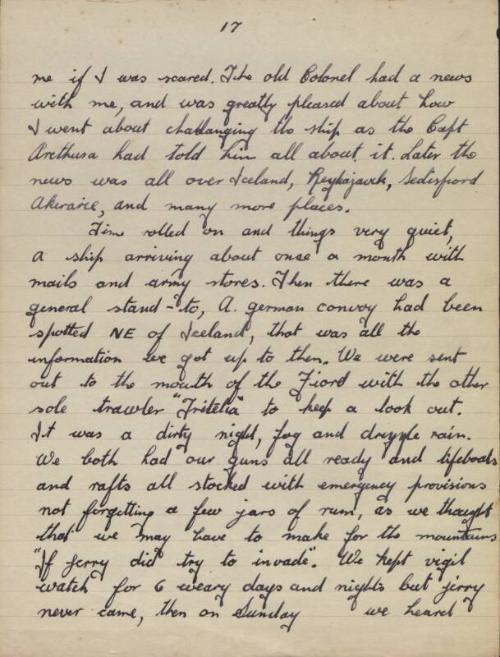 17
me if I was scared. The old Colonel had a news
with me, and was greatly pleased about how
I went about challanging the ship as the Capt
Arethusa had told him all about it. Later the
news was all over Iceland, Reykajavik, Sedisfiord
Akeraire, and many more places.
Time rolled on and things very quiet,
a ship arriving about once a month with
mails and army stores. Then there was a
general stand-to, A. german convoy had been
spotted NE of Iceland, that was all the
information we got up to then. We were sent
out to the mouth of the Fiord with the other
sole trawler "Tritelia" to keep a look out.
It was a dirty night, fog and drizzle rain.
We both had our guns all ready and lifeboats
and rafts all stocked with emergency provisions
not forgetting a few jars of rum, as we thought
that we may have to make for the mountains
"If jerry did try to invade". We kept vigil
watch for 6 weary days and nights but jerry
never came, then on Sunday we heard